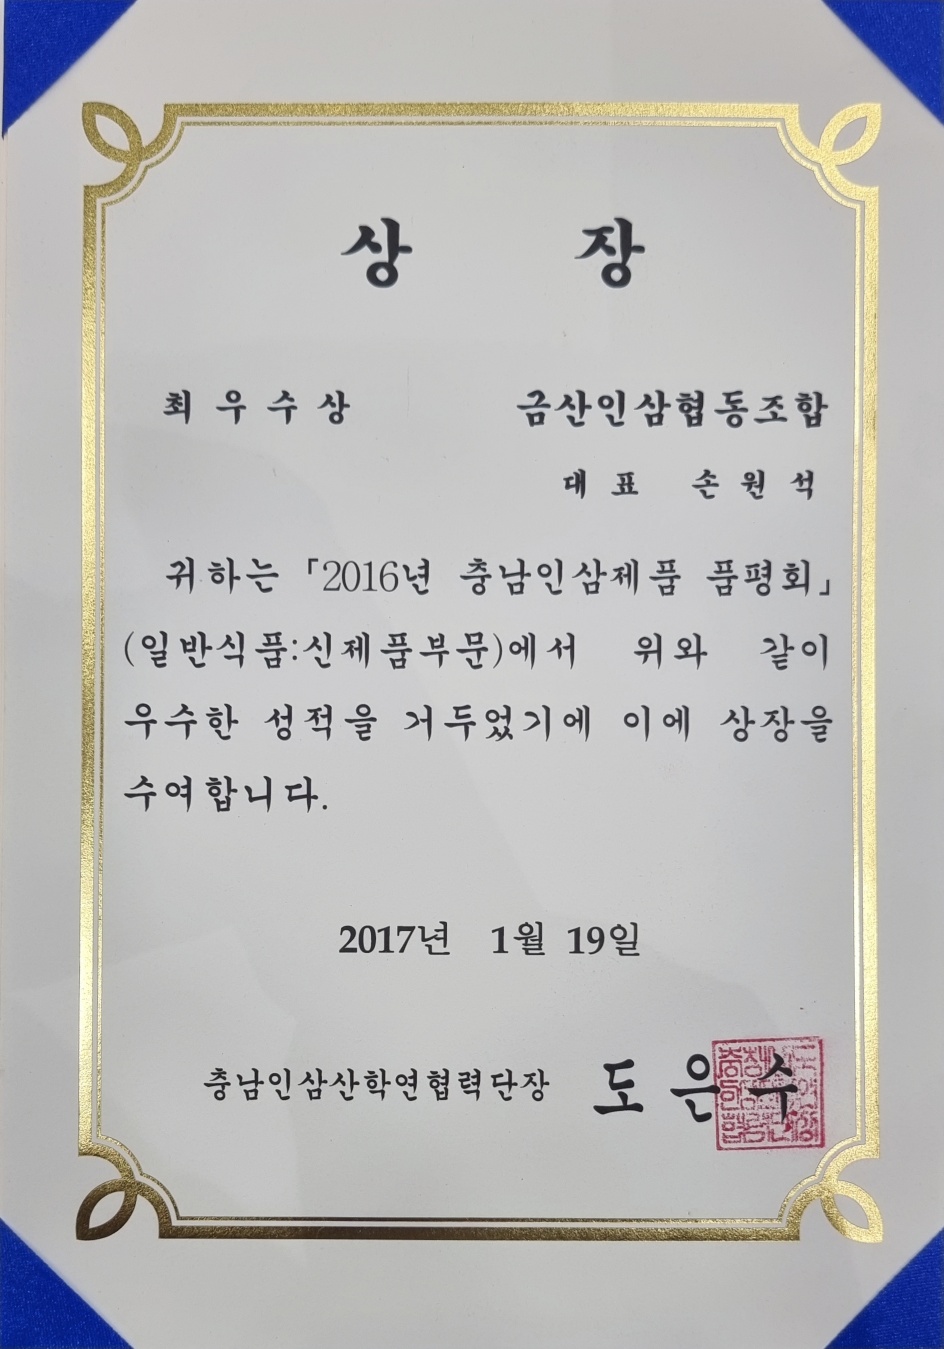 상 장
최우수상 금산인삼협동조합
대표 손원석
귀하는 「2016년 충남인삼제품 품평회」
(일반식품:신제품부문)에서 위와 같이
우수한 성적을 거두었기에 이에 상장을
수여합니다.
2017년 1월 19일
충남인삼산학연협력단장 도은수